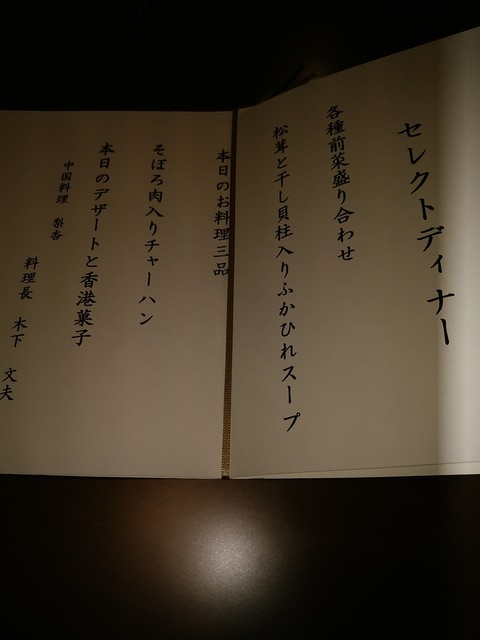 セレクトディナー
各種前菜盛り合わせ
松茸と干し貝柱入りふかひれスープ
本日のお料理三品
そぼろ肉入りチャーハン
本日のデザートと香港菓子
中国料理 梨杏
料理長 木下 文夫